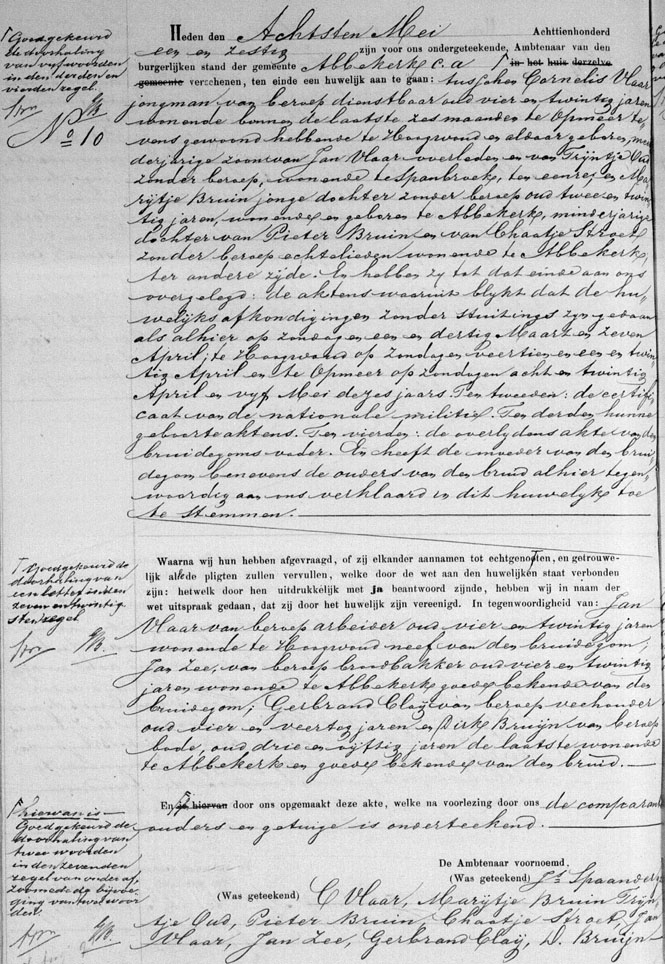 Goedgekeurd
de doorhaling
van vijf woorden
in den derden en
vierden regel.
No 10
Heden den Achtsten Mei Achttienhonderd
een en zestig zijn voor ons ondergeteekende, Ambtenaar van den
burgerlijken stand der gemeente Abbekerk c.a in het huis derzelve
gemeente verschenen, ten einde een huwelijk aan te gaan: Cornelis Vlaar
jongman van beroep dienstbaar oud vier en twintig jaren
wonende binnen de laatste zes maanden te Opmeer te
vens gewoond hebbende te Hoogwoud en aldaar geboren, meer
derjarige zoon van Jan Vlaar overleden en van Trijntje Oud
zonder beroep, wonende te Spanbroek, ter eenre en Ma
rijtje Bruin jonge dochter zonder beroep oud twee en twin
tig jaren, wonende en geboren te Abbekerk, minderjarige
dochter van Pieter Bruin en van Chaatje Stroet
zonder beroep echtelieden wonende te Abbekerk
ter andere zijde. En hebben zy tot dat einde aan ons
overgelegd: de aktens waaruit blykt dat de hu
welijks afkondigingen zonder stuiting zyn gedaan
als alhier op zondagen een en dertig Maart en zeven
April, te Hoogwoud op zondagen veertien en een en twin
tig April en te Opmeer op zondagen acht en twintig
April en vyf Mei dezes jaars. Ten tweeden: de certifi
caat van de nationale militie. Ten derden hunne
geboorteaktens. Ten vierden: de overlydens akte van des
bruidegoms vader. En heeft de moeder van den brui
degom benevens de ouders van den bruid alhier tegen
woordig aan ons verklaard in dit huwelyk toe
te stemmen.
Goedgekeurd de
doorhaling van
een letter in den
zeven en twintig
sten regel
Waarna wij hun hebben afgevraagd, of zij elkander aannamen tot echtgenooten, en getrouwe-
lijk alle de pligten zullen vervullen, welke door de wet aan den huwelijken staat verbonden
zijn: hetwelk door hen uitdrukkelijk met ja beantwoord zijnde, hebben wij in naam der
wet uitspraak gedaan, dat zij door het huwelijk zijn vereenigd. In tegenwoordigheid van: Jan
Vlaar van beroep arbeider oud vier en twintig jaren
wonende te Hoogwoud neef van den bruidegom;
Jan Zee, van beroep broodbakker oud vier en twintig
jaren wonende te Abbekerk goede bekende van den
bruidegom; Gerbrand Claij van beroep veehouder
oud vier en veertig jaren en Dirk Bruijn van beroep
bode, oud drie en vijftig jaren de laatste wonende
te Abbekerk en goede bekende van den bruid.
hiervan is
Goedgekeurd de
doorhaling van
twee woorden
in den zevenden
regel van onder af,
zoomede de bijvoe
ging van twee woor
den.
En is hiervan door ons opgemaakt deze akte, welke na voorlezing door ons de comparanten
ouders en getuige is onderteekend.
De Ambtenaar voornoemd,
(Was geteekend) Js Spaander
(Was geteekend) C Vlaar, Marijtje Bruin Trijn
tje Oud, Pieter Bruin, Chaatje Stroet, Jan
Vlaar, Jan Zee, Gerbrand Claij, D. Bruijn